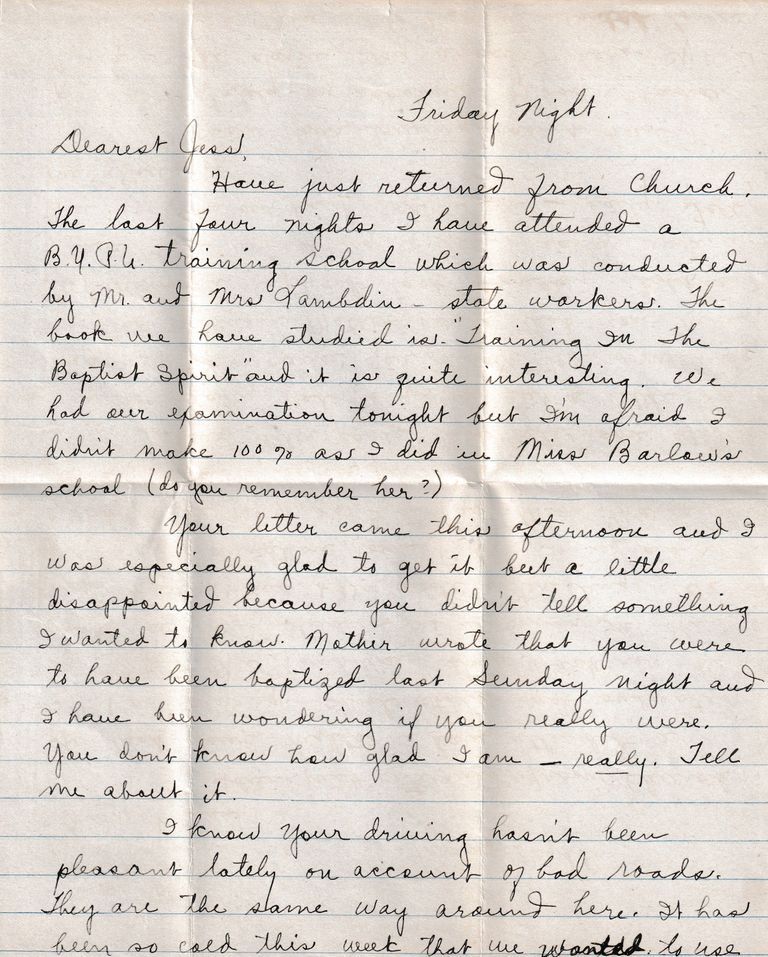 Friday Night.
Dearest Jess,
Have just returned from Church.
The last four nights I have attended a
B.Y.P.U. training school which was conducted
by Mr. and Mrs Lambdin - state workers. The
book we have studied is "Training In The
Baptist Spirit" and it is quite interesting. We
had our examination tonight but I'm afraid I
didn't make 100% as I did in Miss Barlow's
school (do you remember her?)
Your letter came this afternoon and I
was especially glad to get it but a little
disappointed because you didn't tell something
I wanted to know. Mother wrote that you were
to have been baptized last Sunday night and
I have been wondering if you really were.
You don't know how glad I am - really. Tell
me about it.
I know your driving hasn't been
pleasant lately on account of bad roads.
They are the same way around here. It has
been so cold this week that we wanted to use